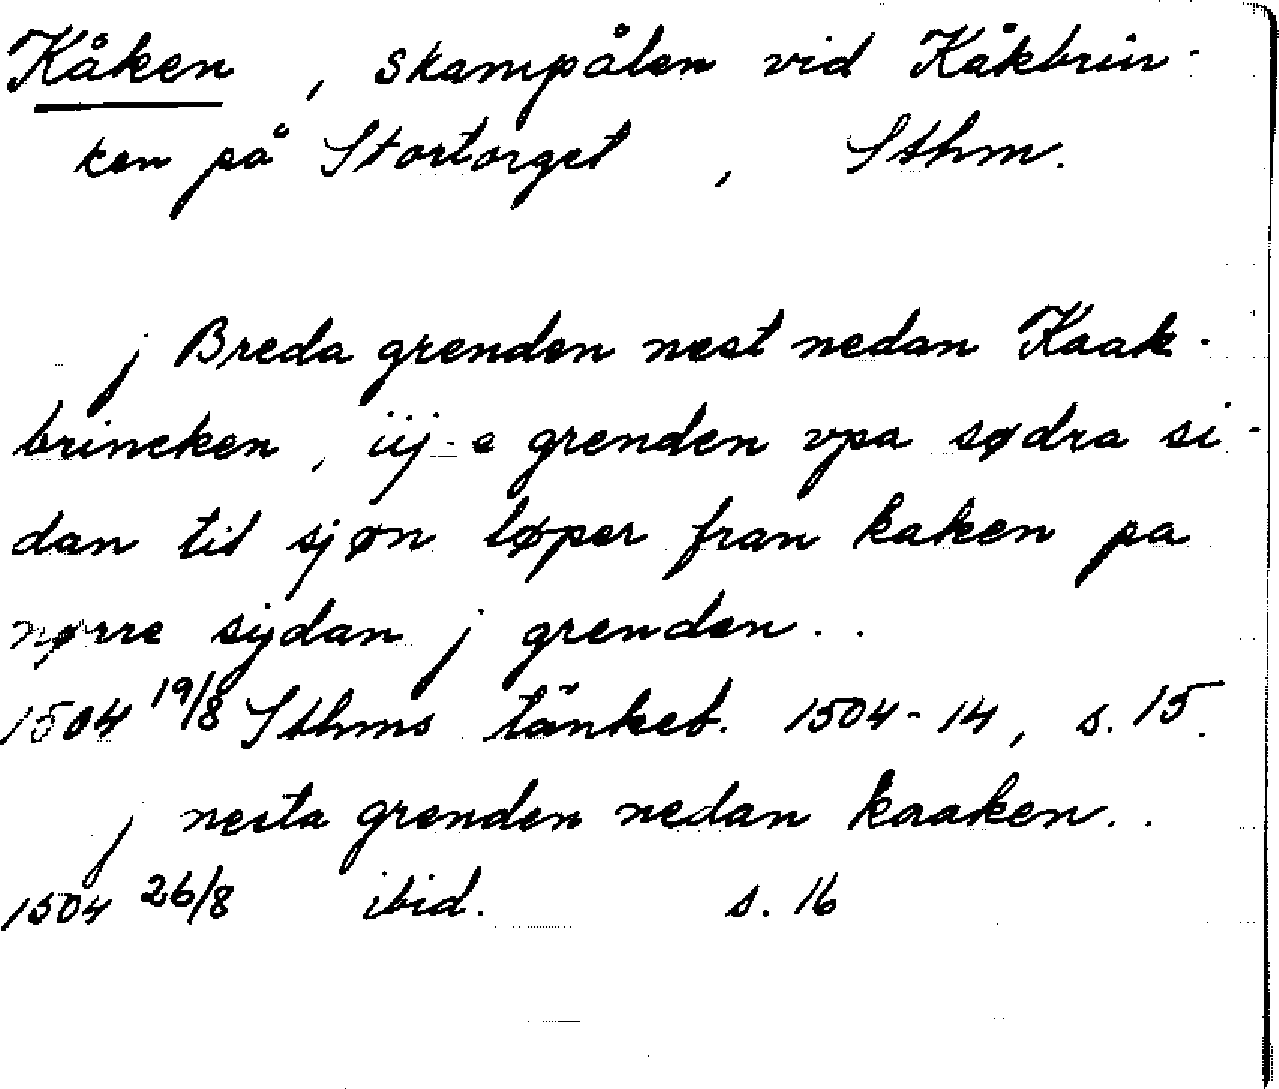 Kåken, skampålen vid Kåkbrin-
ken på Stortorget, Sthm.
j Breda grenden nest nedan Kaak-
brincken, iij-e grenden vpa sødra si-
dan til sjøn løper fran kaken pa
nørre sijdan j grenden..
1504 19/8 Sthms tänkeb. 1504-14, s. 15.
j nesta grenden nedan kaaken..
1504 26/8 ibid. s. 16